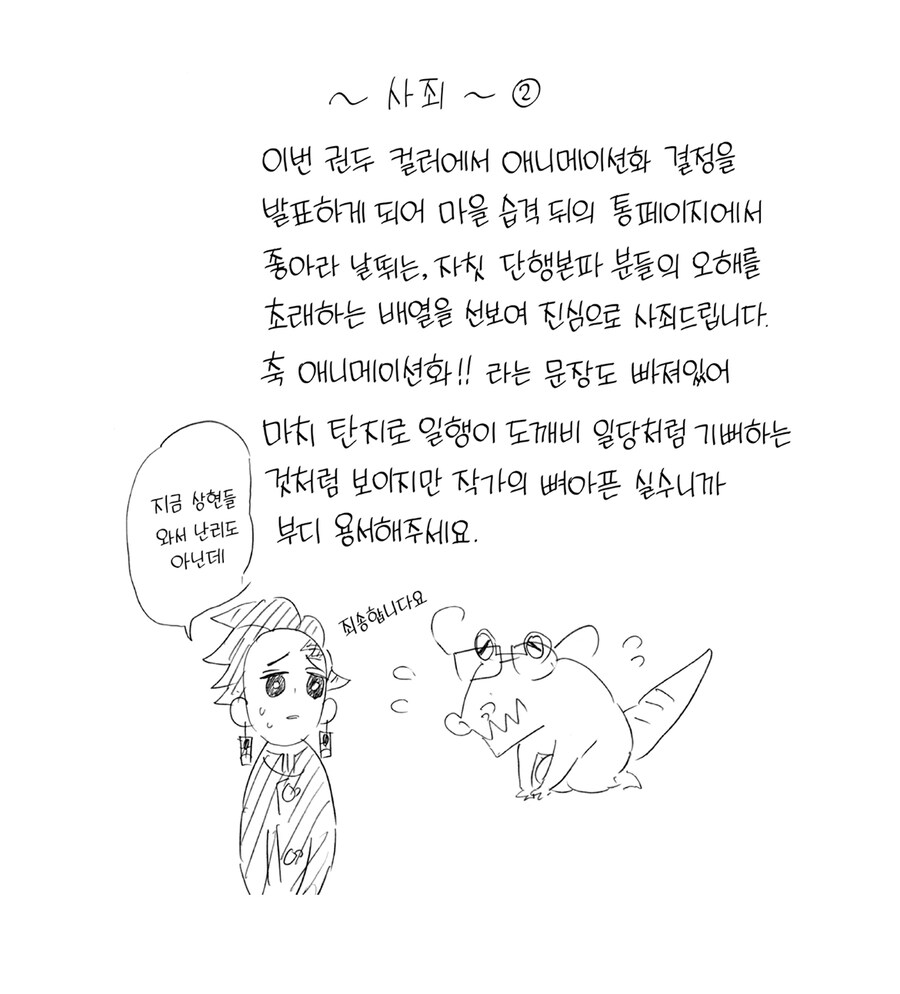 ~ 사죄 ~ ②
이번 권두 컬러에서 애니메이션화 결정을
발표하게 되어 마을 습격 뒤의 통페이지에서
좋아라 날뛰는, 자칫 단행본파 분들의 오해를
초래하는 배열을 선보여 진심으로 사죄드립니다.
축 애니메이션화!! 라는 문장도 빠져있어
마치 탄지로 일행이 도깨비 일당처럼 기뻐하는
것처럼 보이지만 작가의 뼈아픈 실수니까
부디 용서해주세요.
지금 상현들
와서 난리도
아닌데
죄송합니다요